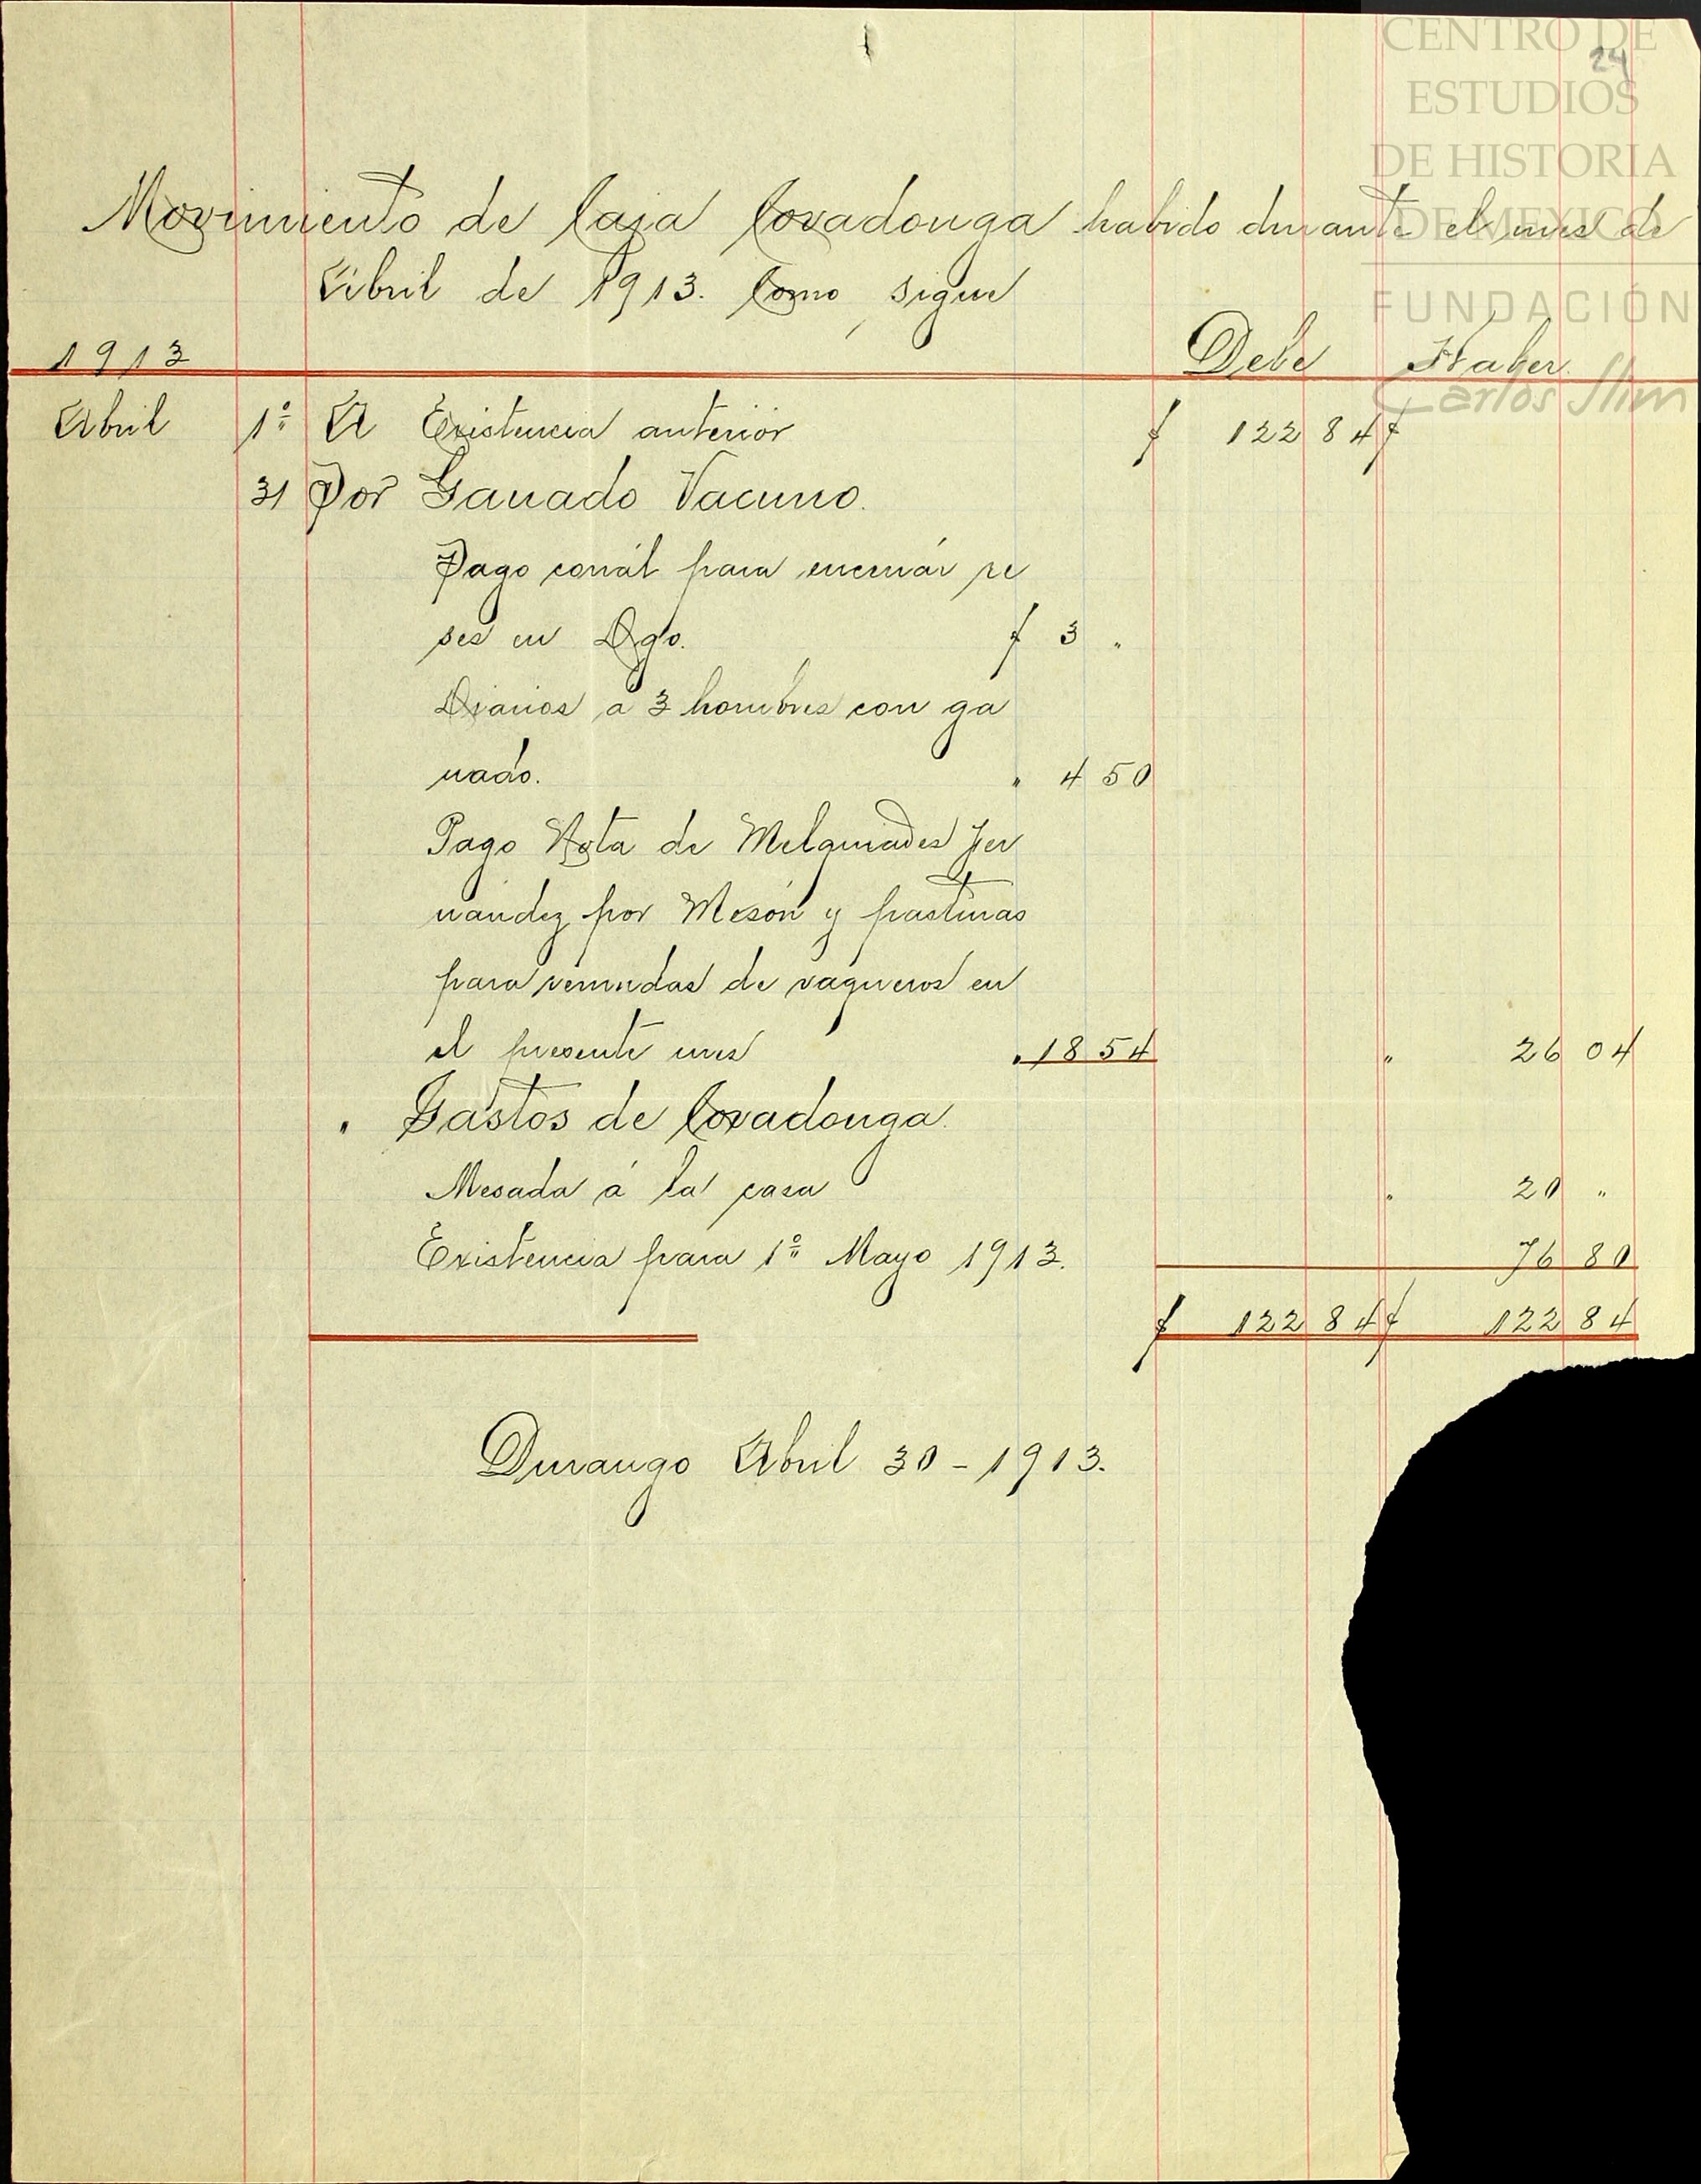 CENTRO DE
24
ESTUDIOS
DE HISTORIA
DE MEXICO
FUNDACIÓN
Carlos Slim
Movimiento de Caja Covadonga habido durante el mes de
Abril de 1913. Como sigue
1913 Debe Haber.
Abril 1º A Existencia anterior $ 122 84 $
31 Por Ganado Vacuno.
Pago corrál para encerrár re
ses en Dgo. $ 3 "
Diarios a 3 hombres con ga
nado. " 4 50
Pago Nota de Melquiades Fer
nandez por Mesón y pasturas
para remudas de vaqueros en
el presente mes " 18 54 " 26 04
" Gastos de Covadonga.
Mesada á la casa " 20 "
Existencia para 1º Mayo 1913. 76 80
$ 122 84 $ 122 84
Durango Abril 30-1913.